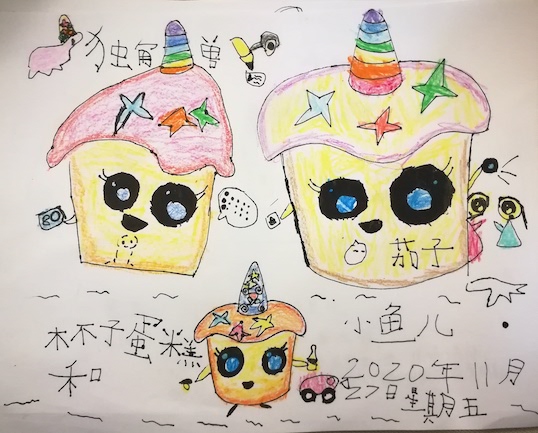 独角单
茄子
杯子蛋糕
和
小鱼儿
2020年11月
27日星期五